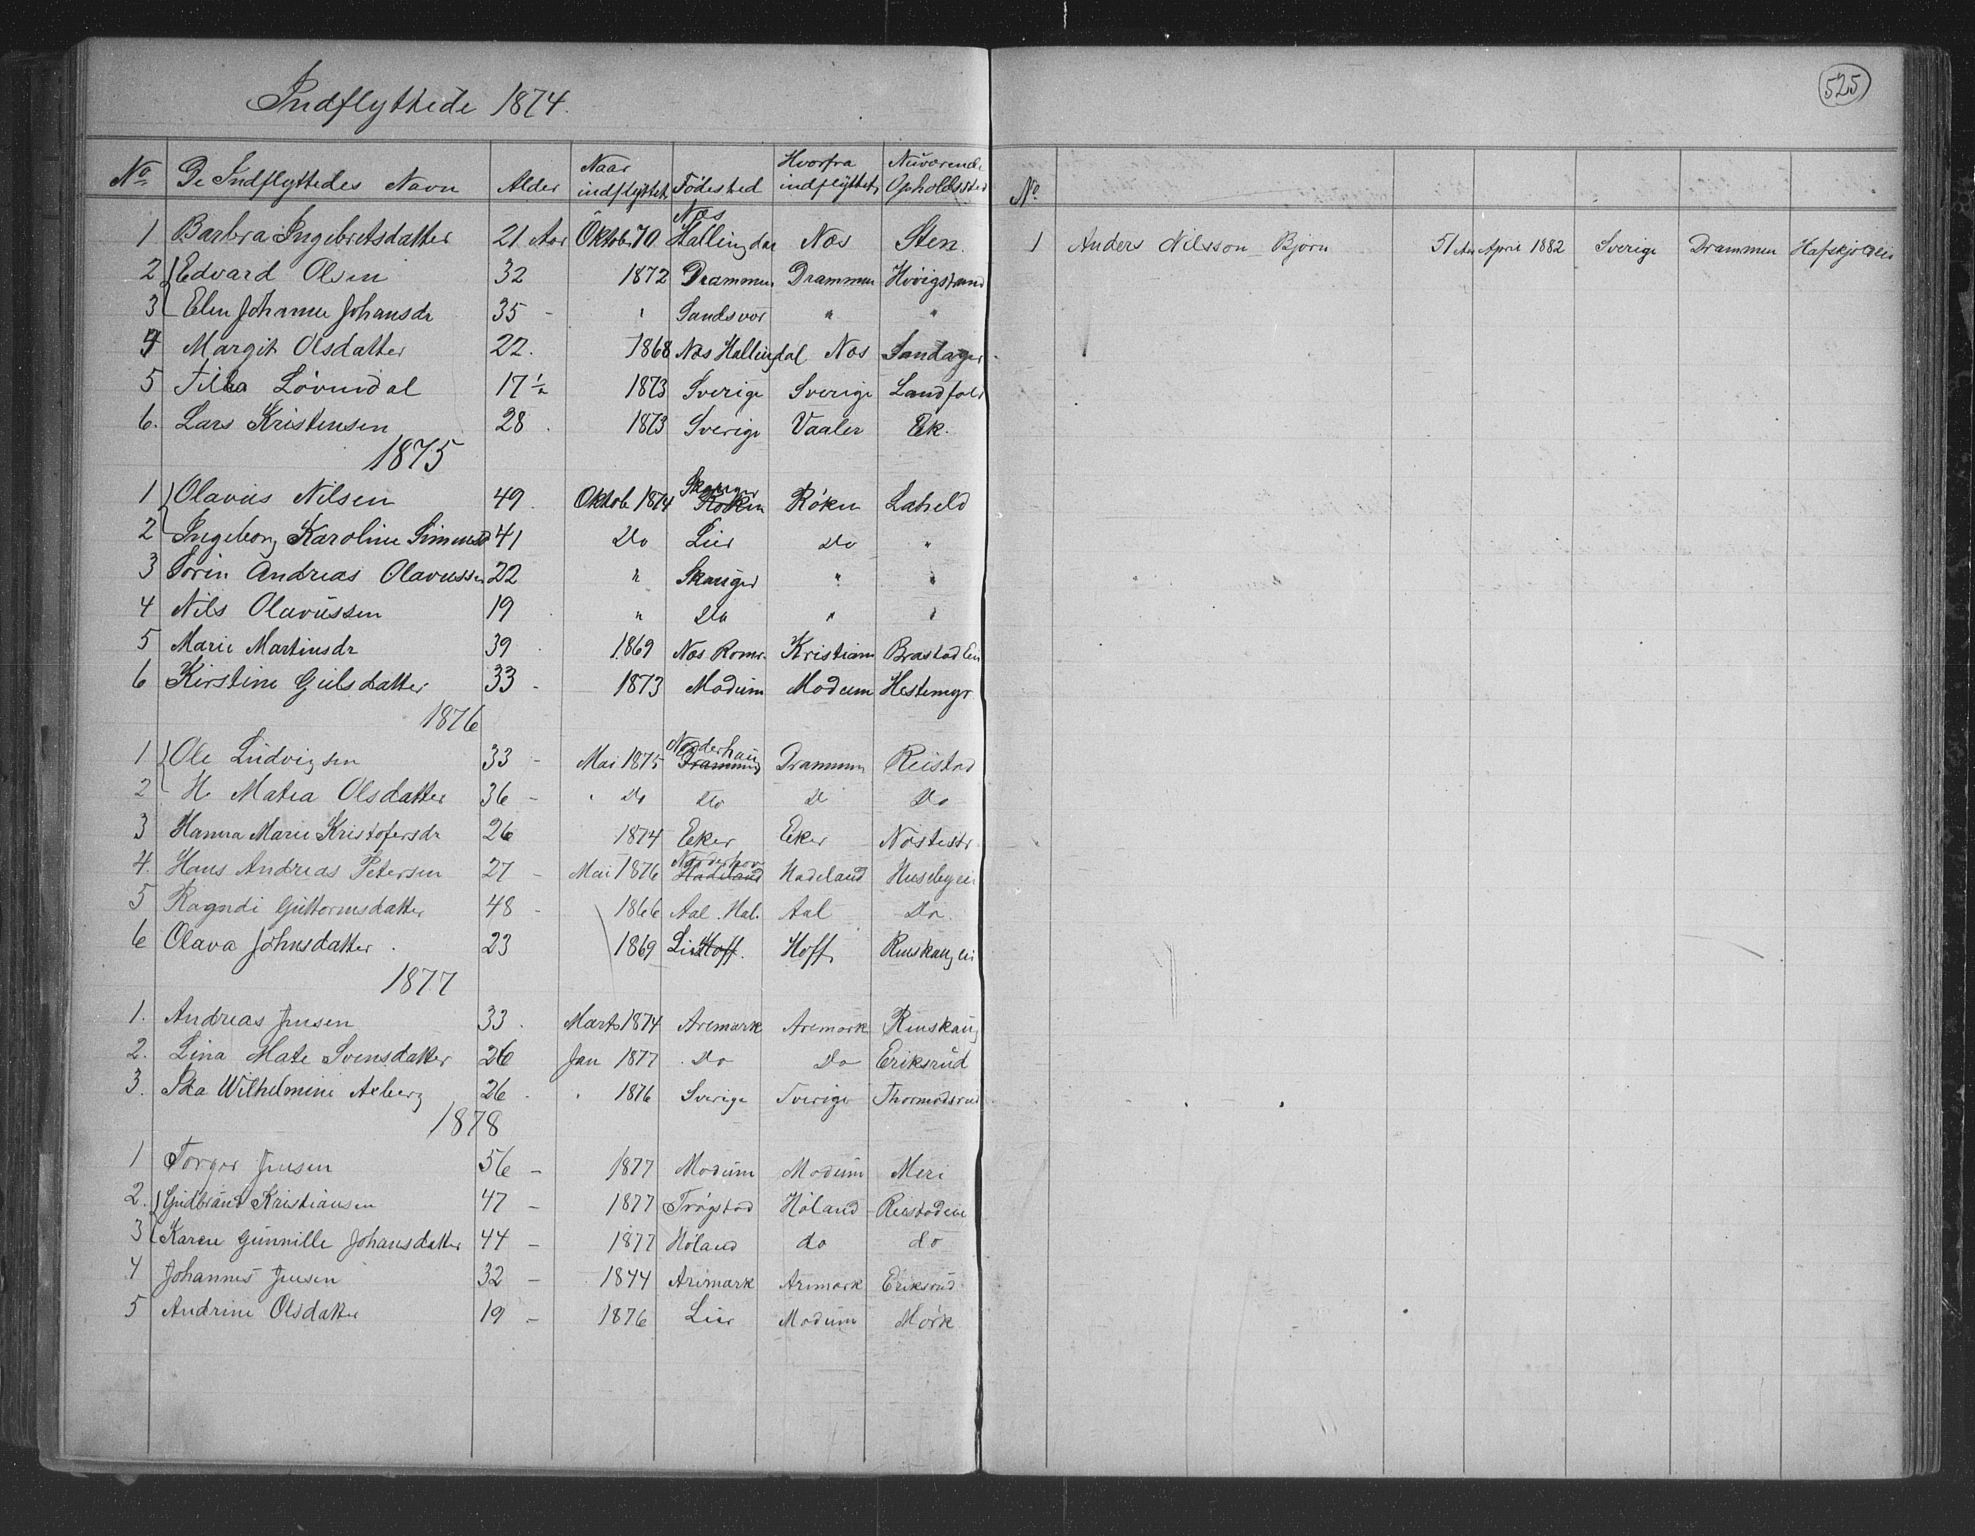 Indflyttede 1874.
No De Indflyttedes Navn Alder Naar indflyttet Fødested Hvorfra indflyttet Nuværende Opholdssted
1 Barbra Ingebretsdatter 21 Aar Oktober 70. Næs Hallingdal Næs Sten.
2 Edvard Olsen 32 1872 Drammen Drammen
3 Elen Johanne Johansdr 35 - " Sandsvær " "
4 Margit Olsdatter 22. 1868 Næs Hallingdal Næs Sandager
5 Løvendal 17 ½ 1873 Sverige Sverige Landfald
6. Lars Kristensen 28. 1873 Sverige Vaaler Ek.
1875
1 Olavus Nilsen 49. Oktob 1874 Skauger Røken Røken Laheld
2 Ingeborg Karoline Simensd 41 Do Lier Do "
3 Sørin Andreas Olavussen 22 " Skauger " "
4 Nils Olavussen 19 " Do " "
5 Marie Martinsdr 39. 1869 Næs Rome. Kristiania
6 Kirstine Gulsdatter 33 - 1873 Modum Modum Hestemyr.
1876
1 Ole Ludvigsen 33 - Mai 1875 Norderhau Drammen Drammen Reistad
2 H. Matea Olsdatter 36 - " Do Do D Do
3 Hanna Marie Kristofersdr 26 1874 Eker Eker Nøstestr.
4. Hans Andreas Petersen 27 - Mai 1876 Norderhov Hadeland Hadeland Husebyeie
5 Ragndi Guttormsdatter 48 - 1866 Aal. Hal. Aal Do.
6 Olava Johnsdatter. 23 1869 Lier Hoff. Hoff,
1877
1. Andreas Jensen 33. Marts 1874 Aremark Aremark Renskaug
2. Lina Mate Svensdatter 26 Jan 1877 Do Do Eriksrud
3. Ida Wilhelmine Axberg 26. " 1876 Sverige Sverige Thormodsrud
1878
1 Torger Jensen 56 - 1877 Modum Modum Meri
2. Gudbrand Kristiansen 47 - 1877 Trøgstad Høland Reistadeie
3 Karen Gunnille Johansdatter 44 - 1877 Høland do do
4 Johannes Jensen 32 - 1844 Aremark Aremark Eriksrud
5 Andrine Olsdatter 19 - 1876 Lier Modum Mørk
525
No
1 Anders Nilsson Bjørn 51 Aar April 1882 Sverige Drammen Hafskjoldeie